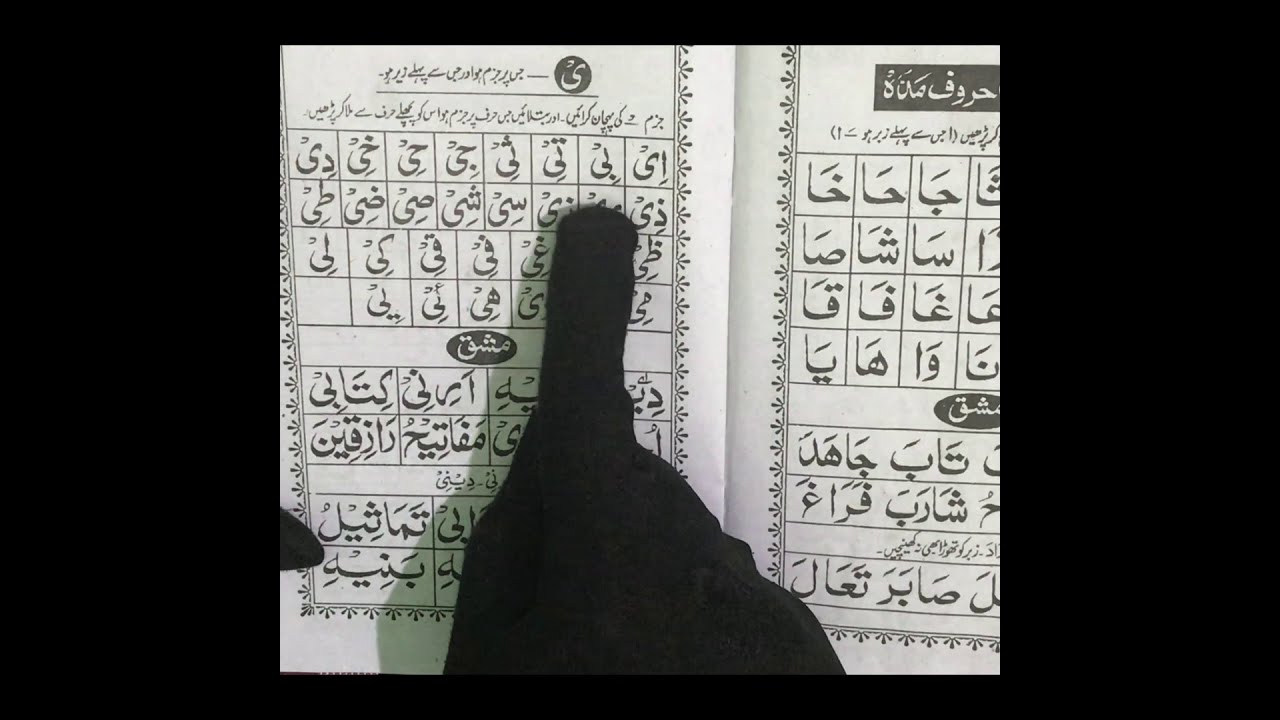 یْ — جس پر جزم ہو اور جس سے پہلے زیر ہو۔
جزم ـْ کی پہچان کرائیں۔ اور بتلائیں جس حرف پر جزم ہو اس کو پچھلے حرف سے ملا کر پڑھیں۔
اِیْ بِیْ تِیْ ثِیْ جِیْ حِیْ خِیْ دِیْ
ذِیْ زِیْ سِیْ شِیْ صِیْ ضِیْ طِیْ
ظِیْ غِیْ فِیْ قِیْ کِیْ لِیْ
مِیْ هِیْ ئِیْ یِیْ
مشق
اَرِنِیْ کِتَابِیْ
مَفَاتِیْحُ رَازِقِیْنَ
نِیْ۔ دِیْنِیْ
تَمَاثِیْلُ
بَنِیْهِ
حروف مَدَّہ
کر پڑھیں (ا جس سے پہلے زبر ہو ـَ ا)
ثَا جَا حَا خَا
سَا شَا صَا
عَا غَا فَا قَا
نَا وَا هَا یَا
مشق
تَابَ جَاهَدَ
شَارَبَ فَرَاغَ
زبر کو تھوڑا بھی نہ کھینچیں۔
صَابَرَ تَعَالَ